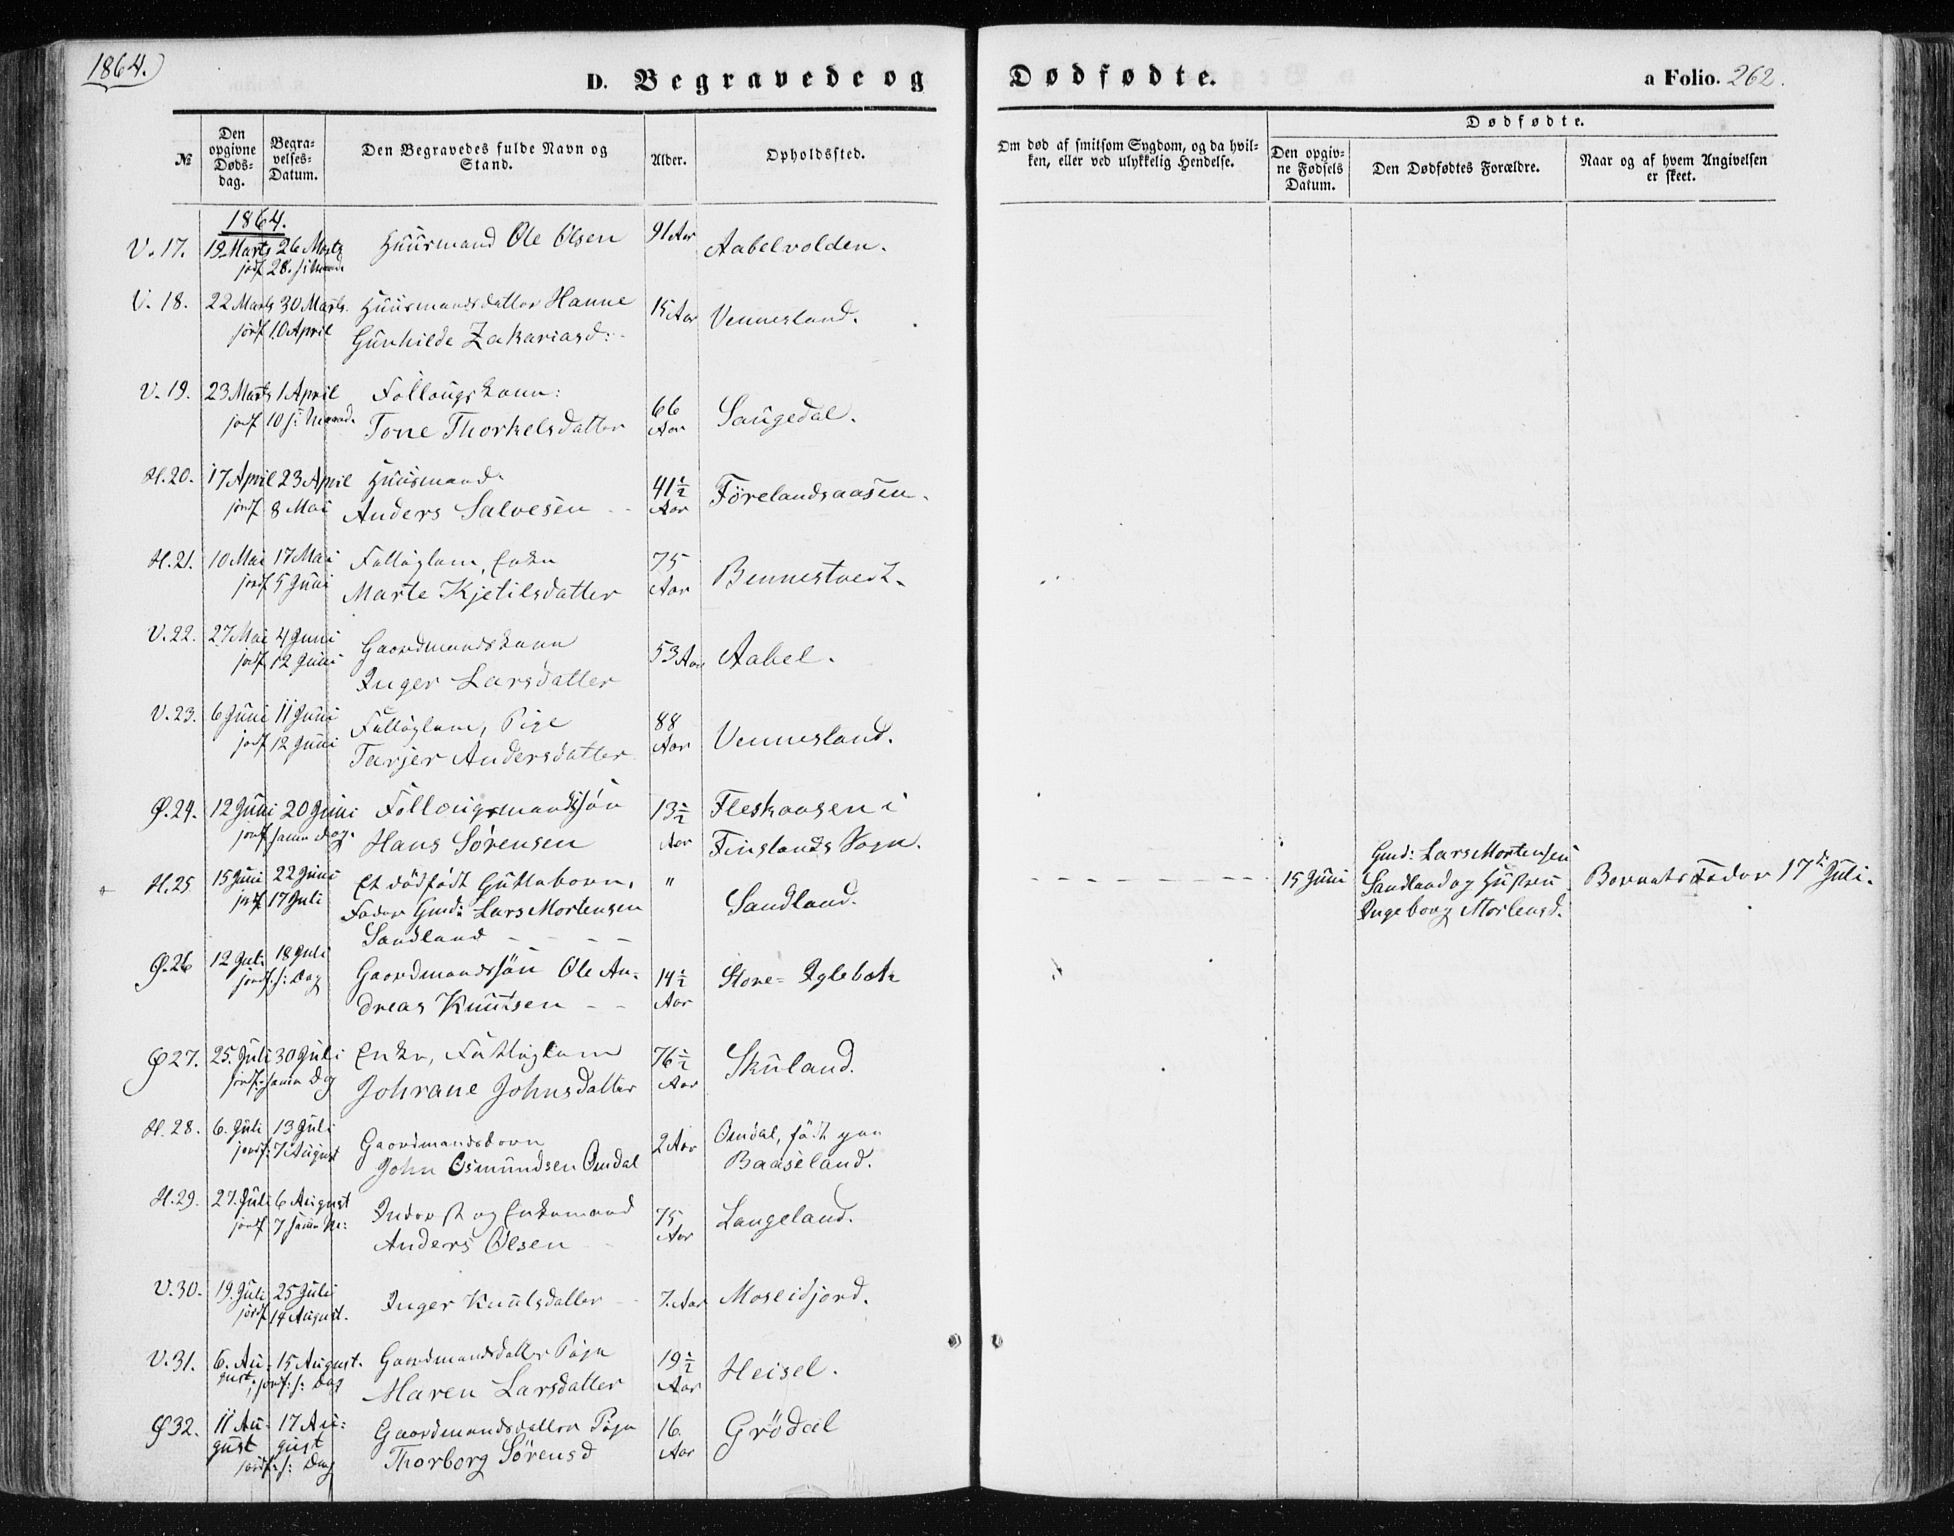 1864.
D. Begravede og Dødfødte. a Folio. 262.
№
Den opgivne Døds-dag.
Begra-velses-Datum.
Den Begravedes fulde Navn og Stand.
Alder.
Opholdssted.
Om død af smitsom Sygdom, og da hvil-
ken, eller ved ulykkelig Hendelse.
Dødfødte.
Den opgiv-ne Fødsels Datum.
Den Dødfødtes Forældre.
Naar og af hvem Angivelsen er skeet.
1864.
V. 17. 19 Marts 26 Marts Huusmand Ole Olsen 91 Aar Aabelvolden.
jordf 28.
V. 18. 22 Marts 30 Marts. Huusmandsdatter Hanne 15 Aar Vennesland.
jordf 10 April Gunhilde Zakariasd:
V. 19. 23 Marts 1 April Follougskone: 66 Aar Saugedal.
jordf 10 s: Maaned. Tone Thorkelsdatter
H. 20. 17 April 23 April Huusmand 41 ½ Aar Førelandsaasen.
jordf 8 Mai Anders Salvesen
H. 21. 10 Mai 17 Mai Fattiglem, Enke 75 Aar Bennestvedt.
jordf 5 Juni Marte Kjetilsdatter
V. 22. 27 Mai 4 Juni Gaardmandskone 53 Aar Aabel.
jordf 12 Juni Inger Larsdatter
V. 23. 6 Juni 11 Juni Fattiglem, Pige 88 Aar Vennesland.
jordf 12 Juni Tarjer Andersdatter
Ø. 24. 12 Juni 20 Juni Follougsmandssøn 13 ½ Aar Fleskaasen i
jordf samme Dag. Hans Sørensen Finslands Sogn.
H. 25 15 Juni 22 Juni Et dødfødt Guttebarn, " Sandland. 15 Juni Gmd: Lars Mortensen
jordf 17 Juli Fader Gmd: Lars Mortensen Sandland og Hustru Barnets Fader 17de Juli.
Sandland Ingeborg Mortensd.
Ø. 26 12 Juli 18 Juli Gaardmandssøn Ole An- 14 ½ Aar Store-Iglebæk
jordf. s: Dag dreas Knutsen
Ø 27. 25. Juli 30 Juli Enke, Fattiglem 76 ½ Aar Skuland.
jordf. samme Dag Johrane Johnsdatter
H. 28. 6. Juli 13 Juli Gaardmandsbarn 2 Aar Omdal, født paa
jordf: 7 August John Osmundsen Omdal Baaseland.
H. 29. 27. Juli 6 August Inderst og Enkemand 75 Aar Langeland.
jordf 7 samme M: Anders Olsen
V. 30. 19. Juli 25 Juli Inger Knutsdatter 7. Aar Moseidjord.
jordf 14 August.
V. 31. 6. Au- 15 August. Gaardmandsdatter Pige 19 ½ Aar Heisel.
gust. jordf: s: Dag Maren Larsdatter
Ø 32. 11 Au- 17 Au: Gaardmandsdatter Pige 16. Aar Grödal
gust gust Thorborg Sørensd
jordf: s: Dag